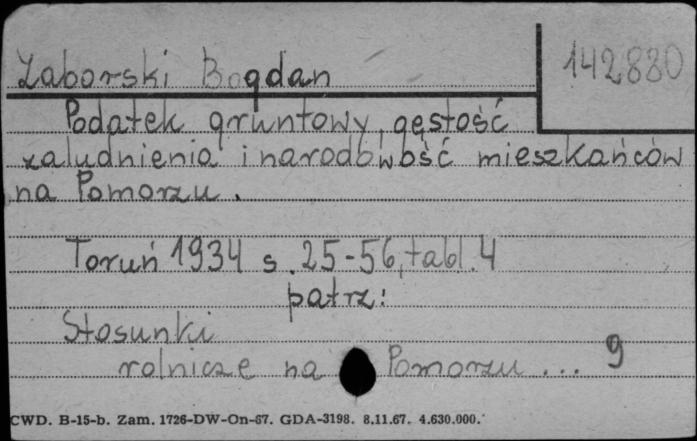 Zaborski Bogdan
142880
Podatek gruntowy, gęstość
zaludnienia i narodowość mieszkańców
na Pomorzu.
Toruń 1934 s. 25-56, tabl. 4
patrz:
Stosunki
rolnicze na Pomorzu ... 9
CWD. B-15-b. Zam. 1726-DW-On-67. GDA-3198. 8.11.67. 4.630.000.